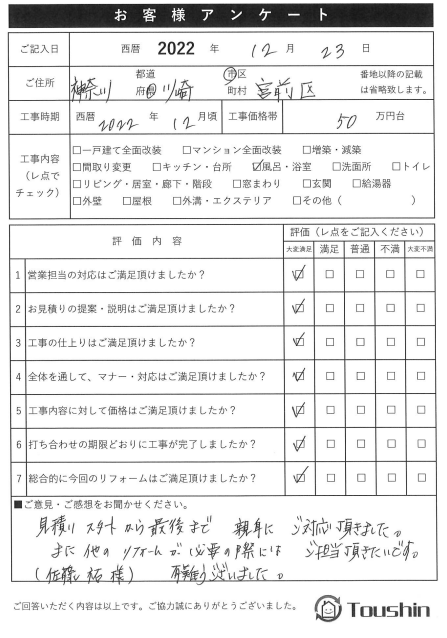 お客様アンケート
ご記入日 西暦 2022 年 12 月 23 日
ご住所 神奈川 都道府県 川崎 市区町村 宮前区 番地以降の記載は省略致します。
工事時期 西暦 2022 年 12 月頃 工事価格帯 50 万円台
工事内容（レ点でチェック）
□一戸建て全面改装 □マンション全面改装 □増築・減築
□間取り変更 □キッチン・台所 ☑風呂・浴室 □洗面所 □トイレ
□リビング・居室・廊下・階段 □窓まわり □玄関 □給湯器
□外壁 □屋根 □外溝・エクステリア □その他（　　　）
評価内容 評価（レ点をご記入ください）
大変満足 満足 普通 不満 大変不満
1 営業担当の対応はご満足頂けましたか？ ☑ □ □ □ □
2 お見積りの提案・説明はご満足頂けましたか？ ☑ □ □ □ □
3 工事の仕上りはご満足頂けましたか？ ☑ □ □ □ □
4 全体を通して、マナー・対応はご満足頂けましたか？ ☑ □ □ □ □
5 工事内容に対して価格はご満足頂けましたか？ ☑ □ □ □ □
6 打ち合わせの期限どおりに工事が完了しましたか？ ☑ □ □ □ □
7 総合的に今回のリフォームはご満足頂けましたか？ ☑ □ □ □ □
■ご意見・ご感想をお聞かせください。
見積りスタートから最後まで 親身に ご対応頂きました。
また他のリフォームが必要の際には ご担当頂きたいです。
（佐藤 様） 有難うございました。
ご回答いただく内容は以上です。ご協力誠にありがとうございました。
Toushin